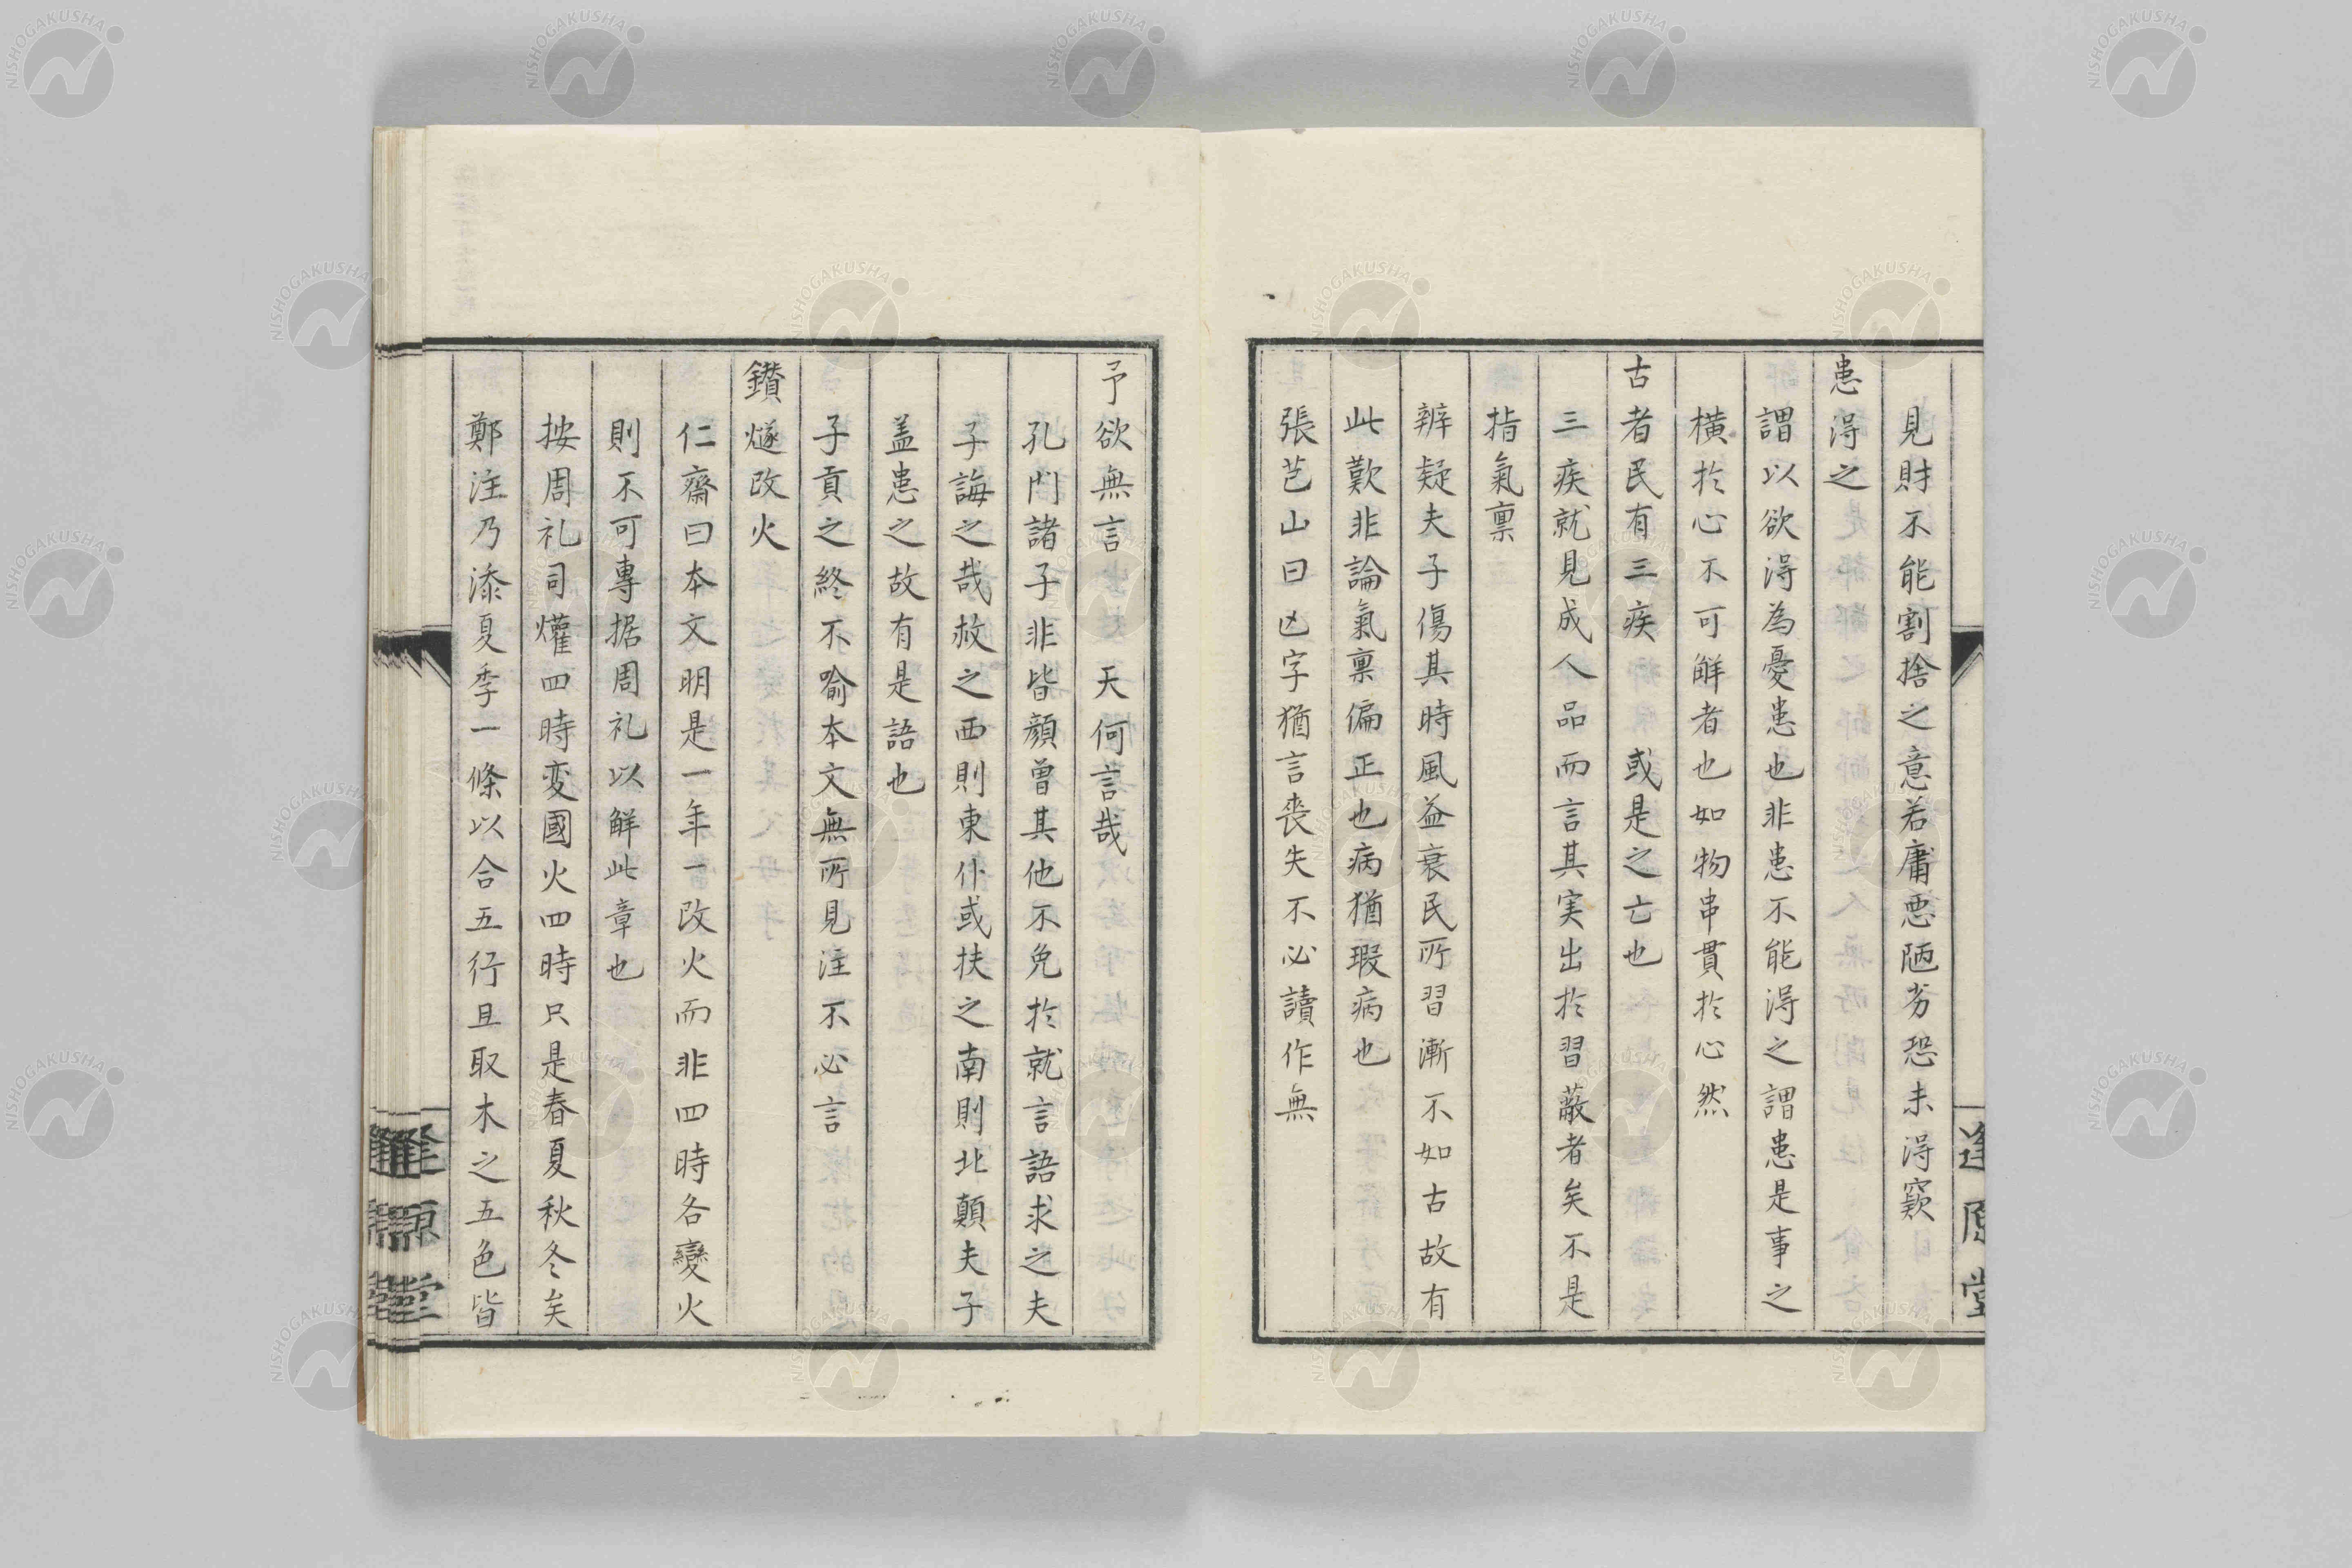 見財不能割捨之意若庸悪陋劣恐未得竅
患得之
謂以欲得為憂患也非患不能得之謂患是事之
横於心不可觧者也如物串貫於心然
古者民有三疾　或是之亡也
三疾就見成人品而言其実出於習蔽者矣不是
指氣稟
辨疑夫子傷其時風益衰民所習漸不如古故有
此歎非論氣稟偏正也病猶瑕病也
張芑山曰亾字猶言喪失不必讀作無
逢原堂
予欲無言　天何言哉
孔門諸子非皆顔曽其他不免於就言語求之夫
子誨之哉赦之西則東仆或扶之南則北顛夫子
盖患之故有是語也
子貢之終不喻本文無所見注不必言
鑚燧改火
仁齋曰本文明是一年一改火而非四時各變火
則不可專据周礼以觧此章也
按周礼司爟四時変國火四時只是春夏秋冬矣
鄭注乃添夏季一條以合五行且取木之五色皆
逢原堂
NISHOGAKUSHA